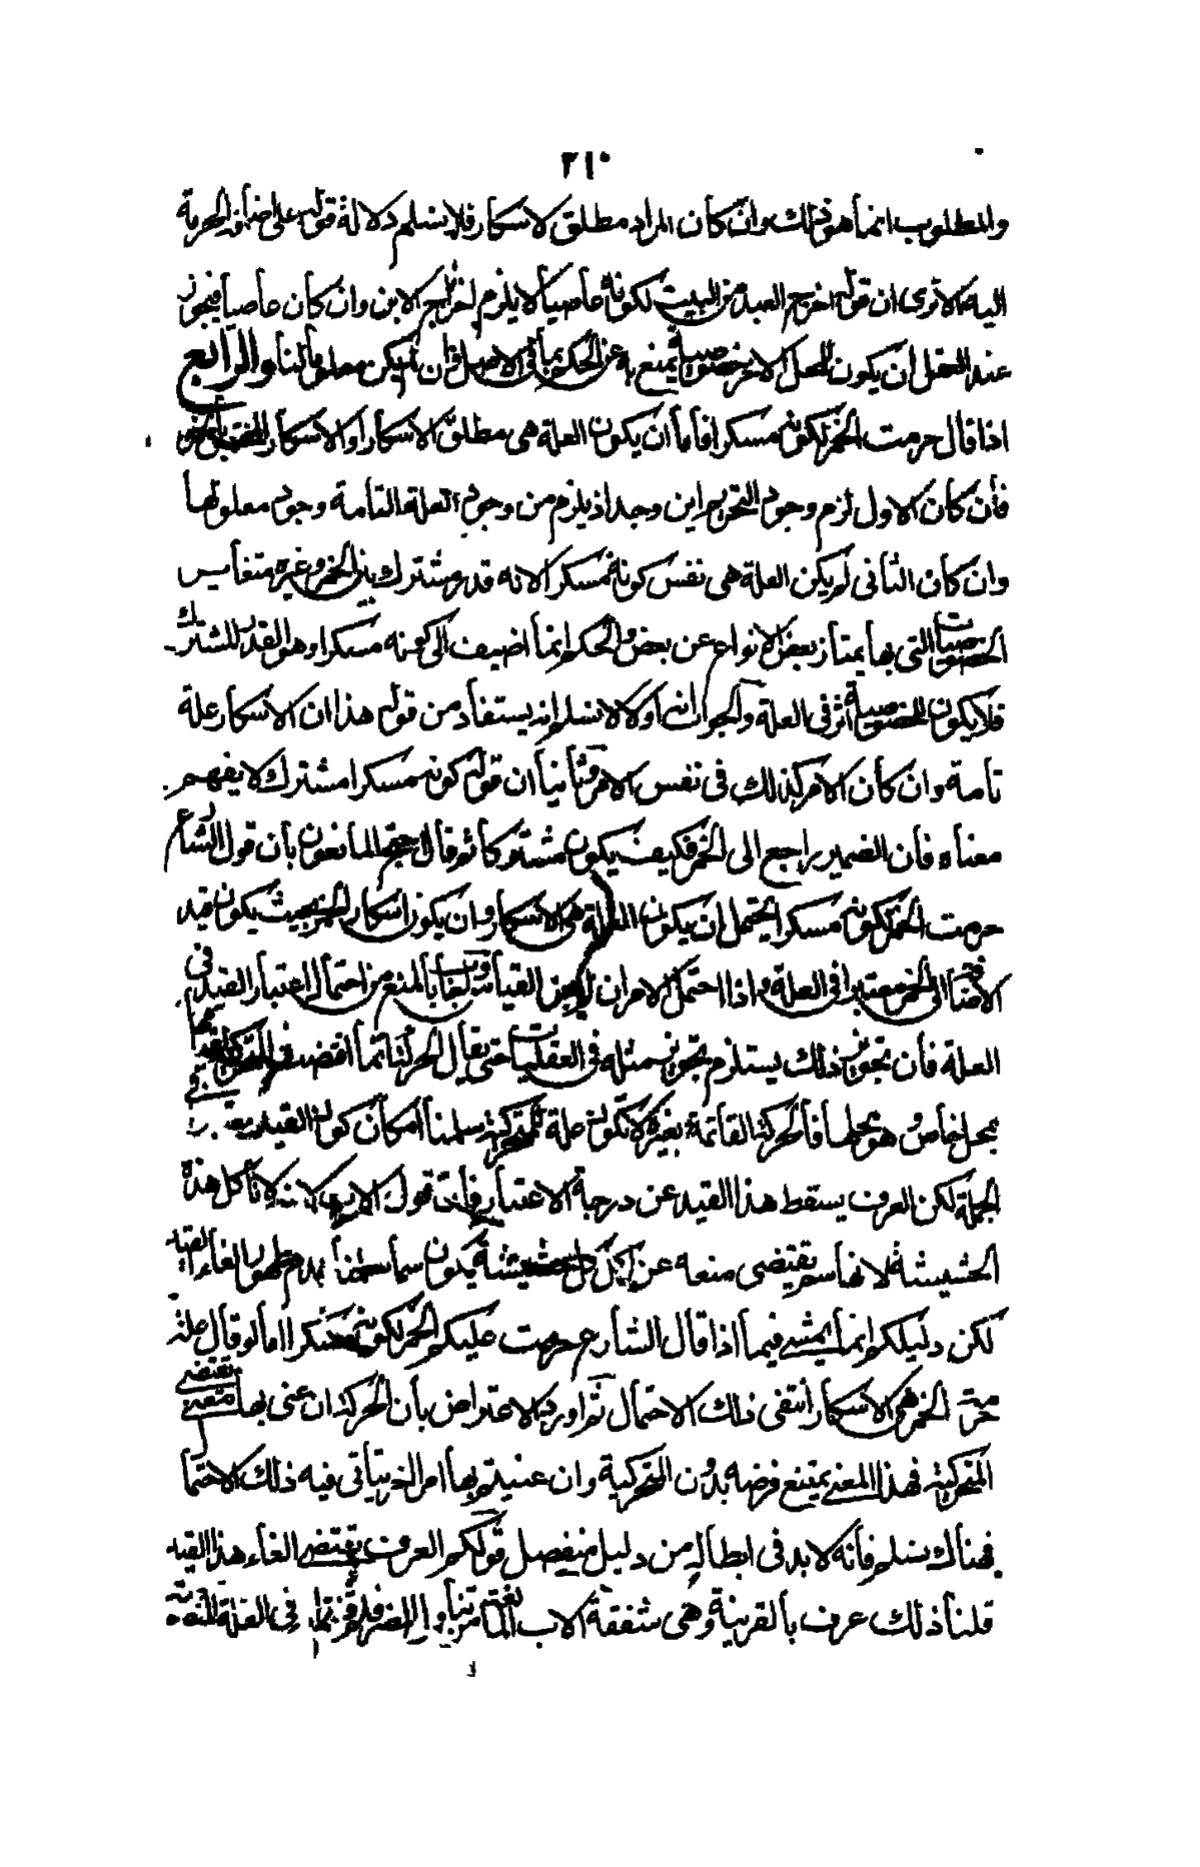 ٢١٠
والمطلوب انما هو ذلك وان كان المراد مطلق الاسكار فلا نسلم دلالة قوله على اضافة الحرمة
اليه الا ترى ان قوله اخرج العبد من البيت لكونه عاصيا لا يلزم اخراج الابن وان كان عاصيا فيجوز
عند العقل ان يكون للمحل الاخر خصوصية يمنع به عن الحكم بما فى الاصل وان لم يكن معلوما لنا والرابع
اذا قال حرمت الخمر لكونه مسكرا فاما ان يكون العلة هى مطلق الاسكار او الاسكار المختص بالخمر
فان كان الاول لزم وجود التحريم اين وجد اذ يلزم من وجود العلة التامة وجود معلولها
وان كان الثانى لم يكن العلة هى نفس كونه مسكرا لانه قدر مشترك بين الخمر وغيره متغاير
الخصوصيات التى بها يمتاز بعض الانواع عن بعض والحكم انما اضيف الى كونه مسكرا وهو القدر المشترك
فلا يكون للخصوصية اثر فى العلة والجواب انه اولا لا نسلم انه يستفاد من قوله هذا ان الاسكار علة
تامة وان كان الامر كذلك فى نفس الامر وثانيا ان قوله كونه مسكرا مشترك لا يفهم
معناه فان الضمير راجع الى الخمر فكيف يكون مشتركا ثم قال احتج المانعون بان قول الشارع
حرمت الخمر لكونه مسكرا يحتمل ان يكون العلة هى الاسكار وان يكون اسكار الخمر بحيث يكون قيد
الاضافة الى الخمر معتبرا فى العلة واذا احتمل الامران لم يجز القياس واجاب بالمنع من احتمال اعتبار القيد فى
العلة فان تجويز ذلك يستلزم تجويز مثله فى العقليات حتى يقال الحركة انما اقتضت المتحركية لقيامها
بمحل خاص وهو محلها فالحركة القائمة بغيره لا تكون علة للمتحركية سلمنا امكان كون القيد
الجملة لكن العرف يسقط هذا القيد عن درجة الاعتبار فان قول الاب لابنه لا تأكل هذه
الحشيشة لانها سم يقتضى منعه عن اكل كل حشيشة يكون سما
لكن دليلكم انما يمشى فيما اذا قال الشارع حرمت عليكم الخمر لكونه مسكرا اما لو قال علة
حرمة الخمر هى الاسكار انتفى ذلك الاحتمال ثم اورد الاعتراض بان الحركة ان عنى بها معنى يقتضى
المتحركية فهذا المعنى يمتنع فرضه بدون المتحركية وان عنيتم بها امرا اخر يتاتى فيه ذلك الاحتما
فهناك نسلم فانه لا بد فى ابطاله من دليل منفصل قولكم العرف يقتضى الغاء هذا القيد
قلنا ذلك عرف بالقرينة وهى شفقة الاب المانعة من تناول المضر فلم قلتم انه فى العلة المنصوصة